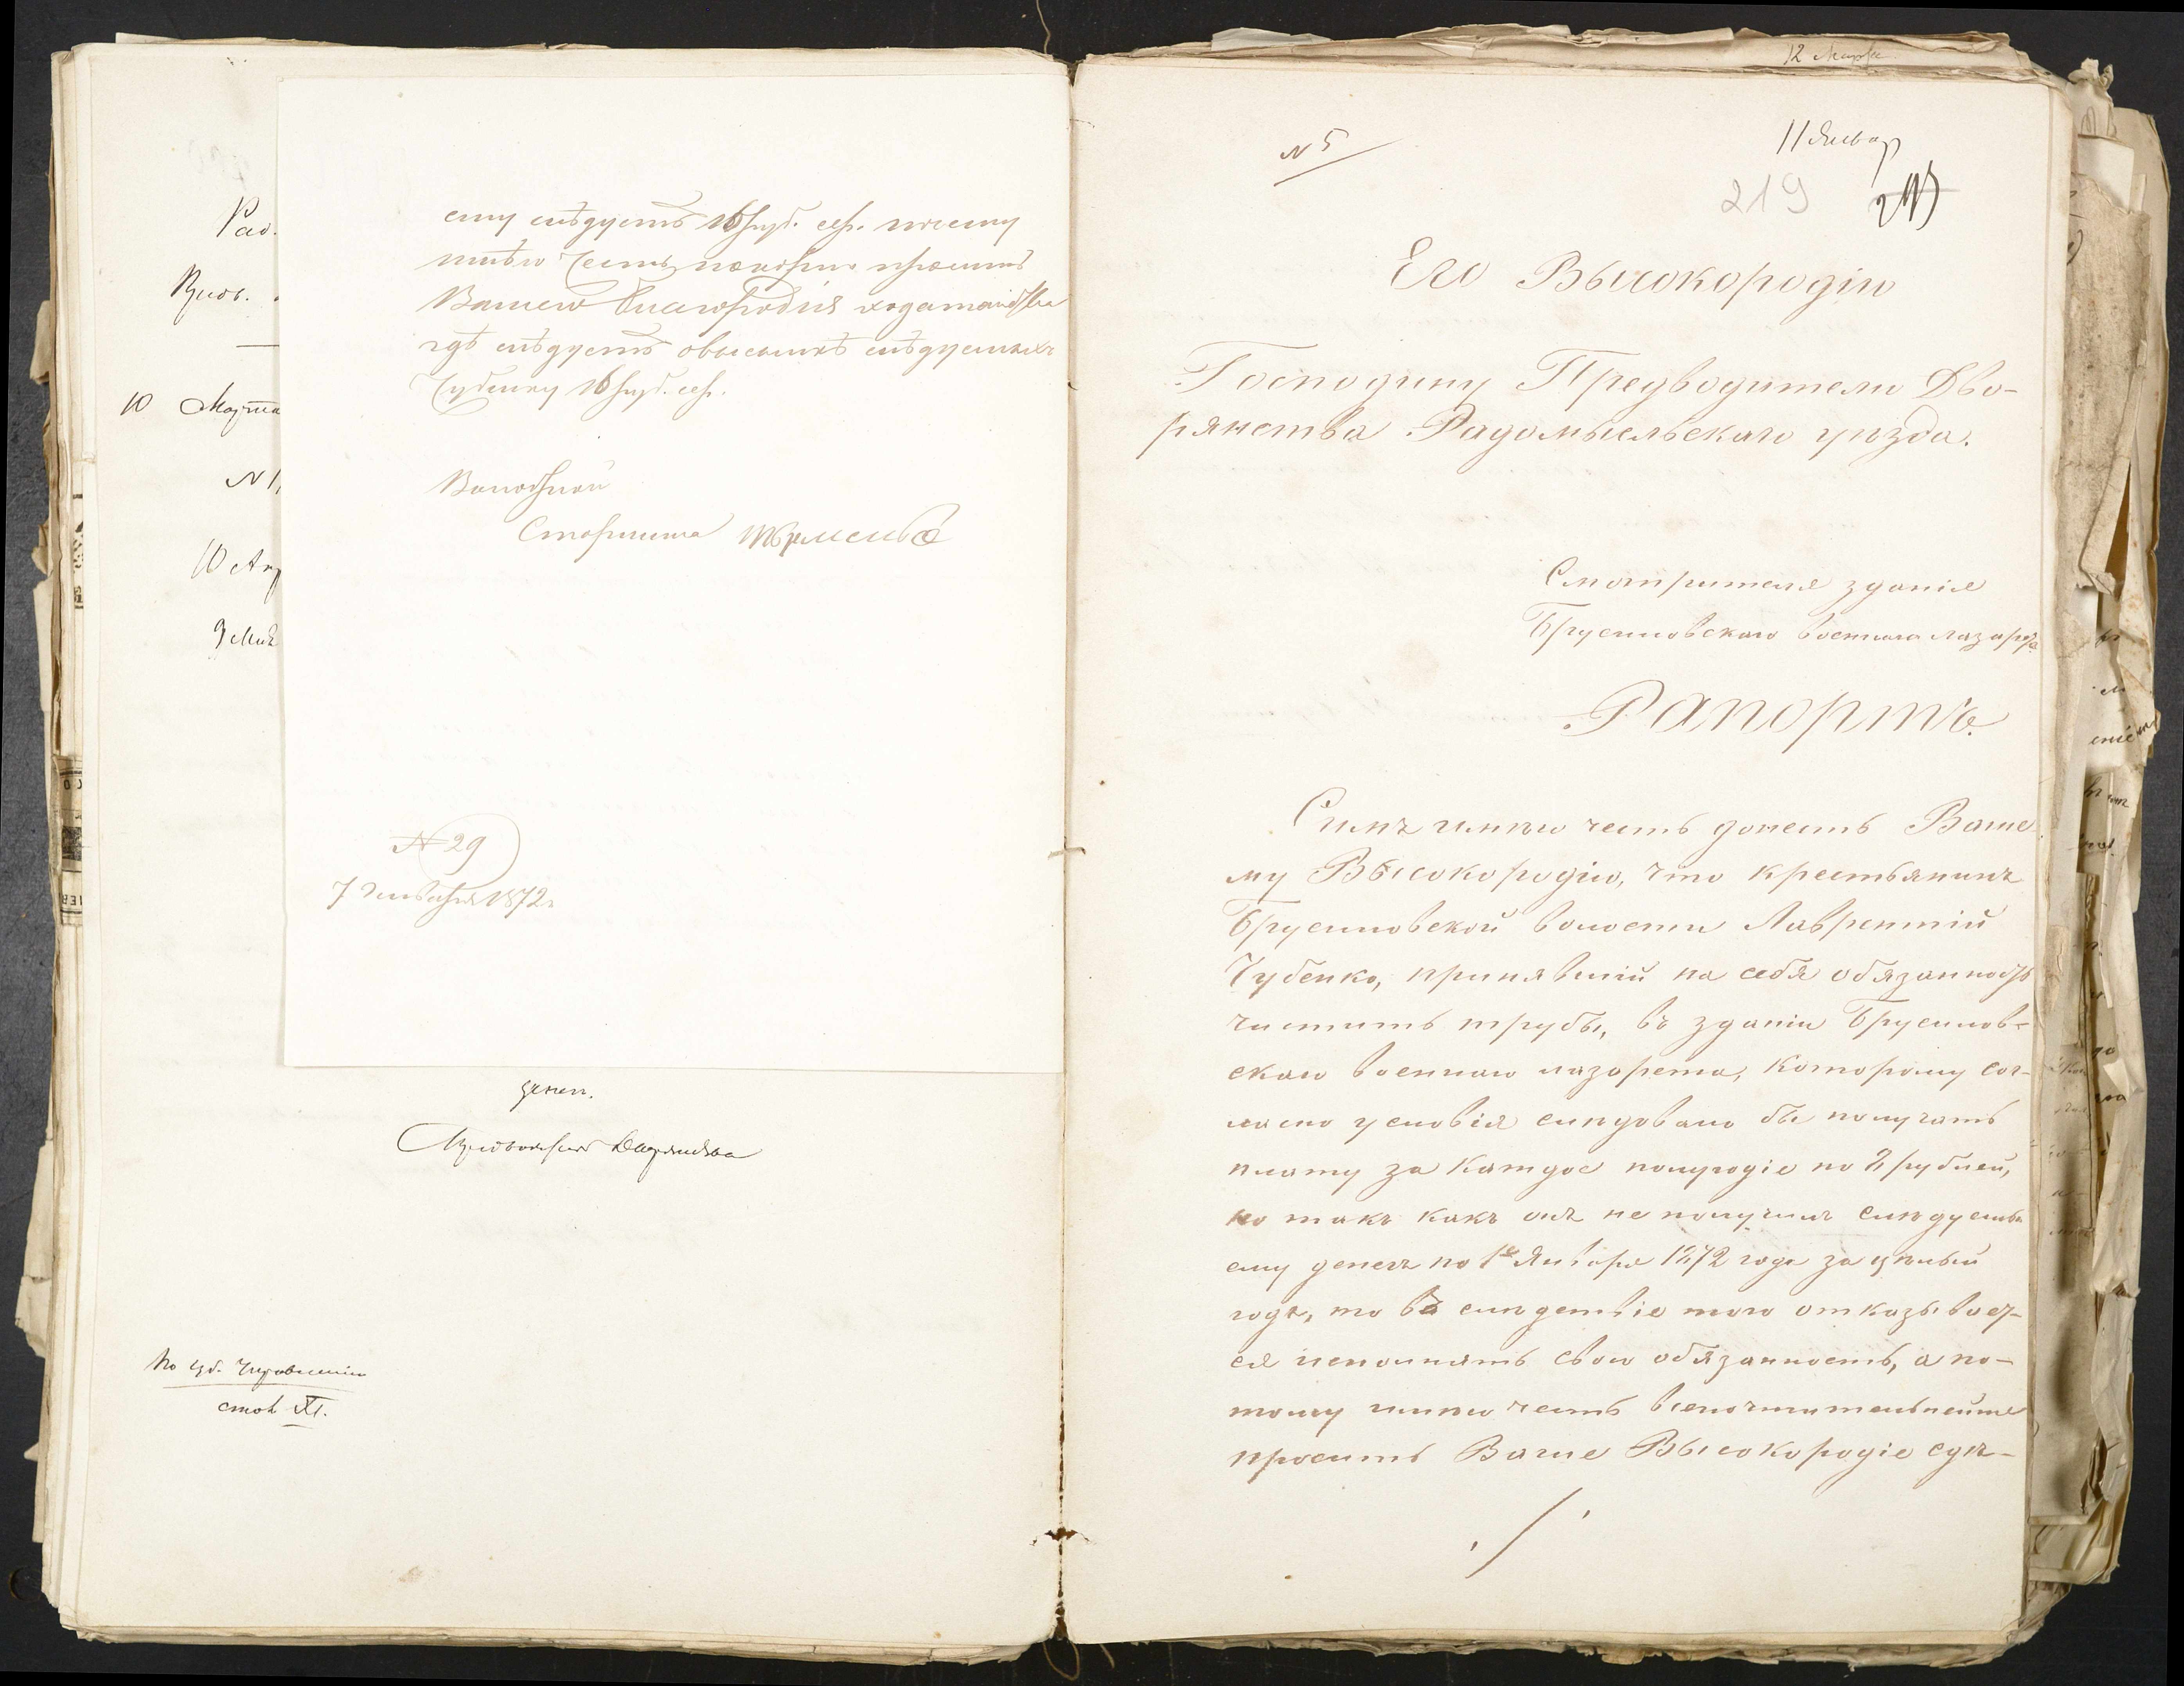 Рад.
10 Марта
N 1
10 Апр
9 Мая
ему слѣдуетъ 16 руб. сер. посему
имѣю честь покорно просить
Вашего Благородія ходатайства
гдѣ слѣдуетъ о высылкѣ слѣдуемыхъ
Чубенку 16 руб. сер.
Волостной
Старшина
N 29
7 Января 1872 г
денег.
Предводитель Дворянства
По
стол XI.
12 Марта
N 5
11 Январ
219
Его Высокородію
Господину Предводителю Дво-
рянства Радомысльскаго уѣзда.
Смотрителя зданія
Брусиловскаго военнаго лазарета
Рапортъ.
Симъ имѣю честь донесть Ваше
му Высокородію, что крестьянинъ
Брусиловской волости Лаврентій
Чубенко, принявшій на себя обязанность
чистить трубы, въ зданіи Брусилов-
скаго военнаго лазарета, которому сог-
ласно условія слѣдовало бы получать
плату за каждое полугодіе по 8 рублей,
но такъ какъ онъ не получилъ слѣдуемыхъ
ему денегъ по 1е Января 1872 года за цѣлый
годъ, то въ слѣдствіе того отказывает-
ся исполнять свою обязанность, а по-
тому имѣю честь всепочтительнѣйше
просить Ваше Высокородіе сдѣ-